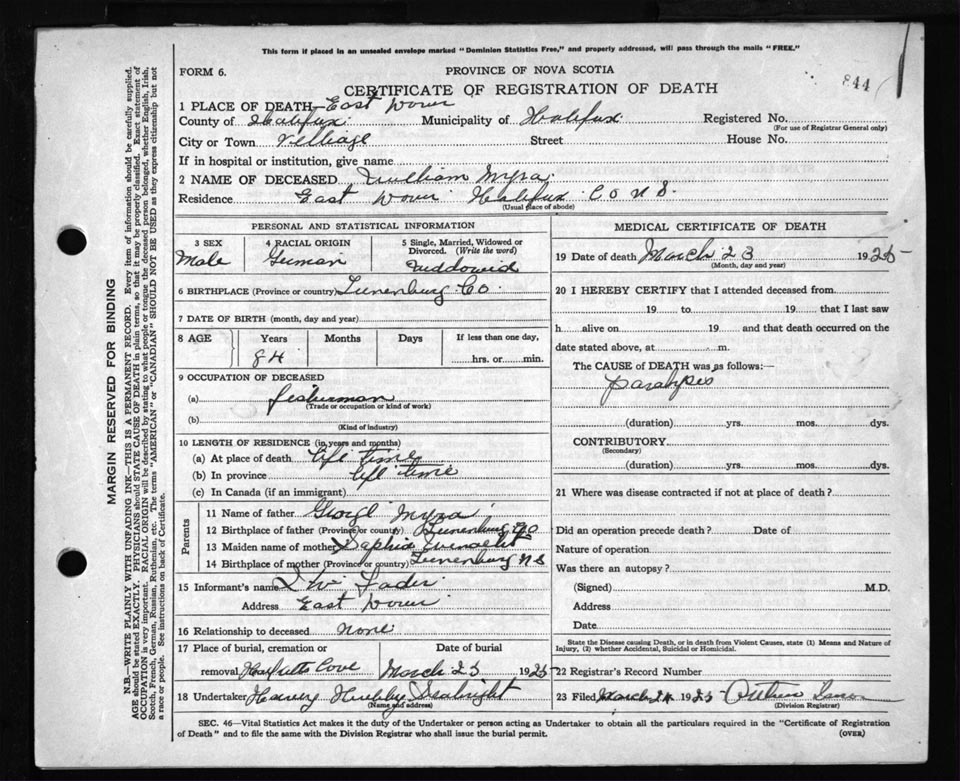 This form if placed in an unsealed envelope marked "Dominion Statistics Free," and properly addressed, will pass through the mails "FREE."
FORM 6.
PROVINCE OF NOVA SCOTIA
844
CERTIFICATE OF REGISTRATION OF DEATH
1 PLACE OF DEATH— East Dover
County of Halifax Municipality of Halifax Registered No.
(For use of Registrar General only)
City or Town Village Street House No.
If in hospital or institution, give name
2 NAME OF DECEASED William Myra
Residence East Dover Halifax Co N S.
(Usual place of abode)
PERSONAL AND STATISTICAL INFORMATION
3 SEX 4 RACIAL ORIGIN 5 Single, Married, Widowed or Divorced. (Write the word)
Male German
6 BIRTHPLACE (Province or country) Lunenburg Co.
7 DATE OF BIRTH (month, day and year)
8 AGE Years Months Days If less than one day,
84 hrs. or min.
9 OCCUPATION OF DECEASED
(a) fisherman
(Trade or occupation or kind of work)
(b)
(Kind of industry)
10 LENGTH OF RESIDENCE (in years and months)
(a) At place of death life time
(b) In province life time
(c) In Canada (if an immigrant)
Parents
11 Name of father George Myra
12 Birthplace of father (Province or country) Lunenburg Co
13 Maiden name of mother
14 Birthplace of mother (Province or country) Lunenburg N S
15 Informant's name
Address East Dover
16 Relationship to deceased none
17 Place of burial, cremation or removal Cove Date of burial March 25 1925
18 Undertaker Harvey Hubley Seabright
(Name and address)
MEDICAL CERTIFICATE OF DEATH
19 Date of death March 23 1925
(Month, day and year)
20 I HEREBY CERTIFY that I attended deceased from
19 to 19 that I last saw
h alive on 19 and that death occurred on the
date stated above, at m.
The CAUSE of DEATH was as follows:—
paralysis
(duration) yrs. mos. dys.
CONTRIBUTORY
(Secondary)
(duration) yrs. mos. dys.
21 Where was disease contracted if not at place of death?
Did an operation precede death? Date of
Nature of operation
Was there an autopsy?
(Signed) M.D.
Address
Date
State the Disease causing Death, or in death from Violent Causes, state (1) Means and Nature of
Injury, (2) whether Accidental, Suicidal or Homicidal.
22 Registrar's Record Number
23 Filed March 24 1925
(Division Registrar)
SEC. 46—Vital Statistics Act makes it the duty of the Undertaker or person acting as Undertaker to obtain all the particulars required in the "Certificate of Registration
of Death" and to file the same with the Division Registrar who shall issue the burial permit. (OVER)
MARGIN RESERVED FOR BINDING
N.B.—WRITE PLAINLY WITH UNFADING INK—THIS IS A PERMANENT RECORD. Every item of information should be carefully supplied.
AGE should be stated EXACTLY. PHYSICIANS should STATE CAUSE OF DEATH in plain terms, so that it may be properly classified. Exact statement of
OCCUPATION is very important. RACIAL ORIGIN will be described by stating to what people or tongue the deceased person belonged, whether English, Irish,
Scotch, French, German, Russian, Ruthenian, etc. The terms "AMERICAN" or "CANADIAN" SHOULD NOT BE USED as they express citizenship but not
a race or people. See instructions on back of Certificate.